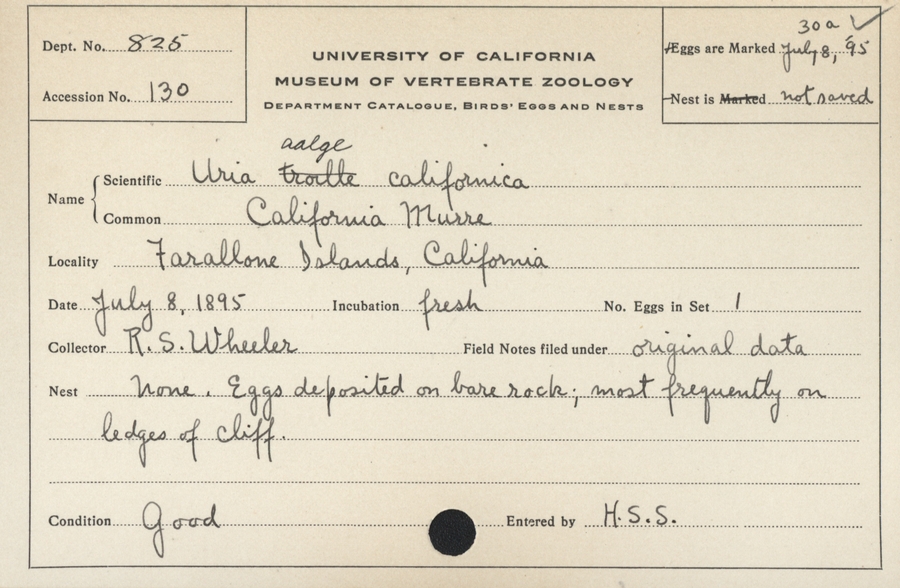 Dept. No. 825
Accession No. 130
UNIVERSITY OF CALIFORNIA
MUSEUM OF VERTEBRATE ZOOLOGY
DEPARTMENT CATALOGUE, BIRDS' EGGS AND NESTS
30a ✓
Eggs are Marked July 8, '95
Nest is Marked not saved
aalge
Name Scientific Uria troille californica
Common California Murre
Locality Farallone Islands, California
Date July 8, 1895 Incubation fresh No. Eggs in Set 1
Collector R. S. Wheeler Field Notes filed under original data
Nest None. Eggs deposited on bare rock; most frequently on
ledges of cliff.
Condition Good Entered by H.S.S.